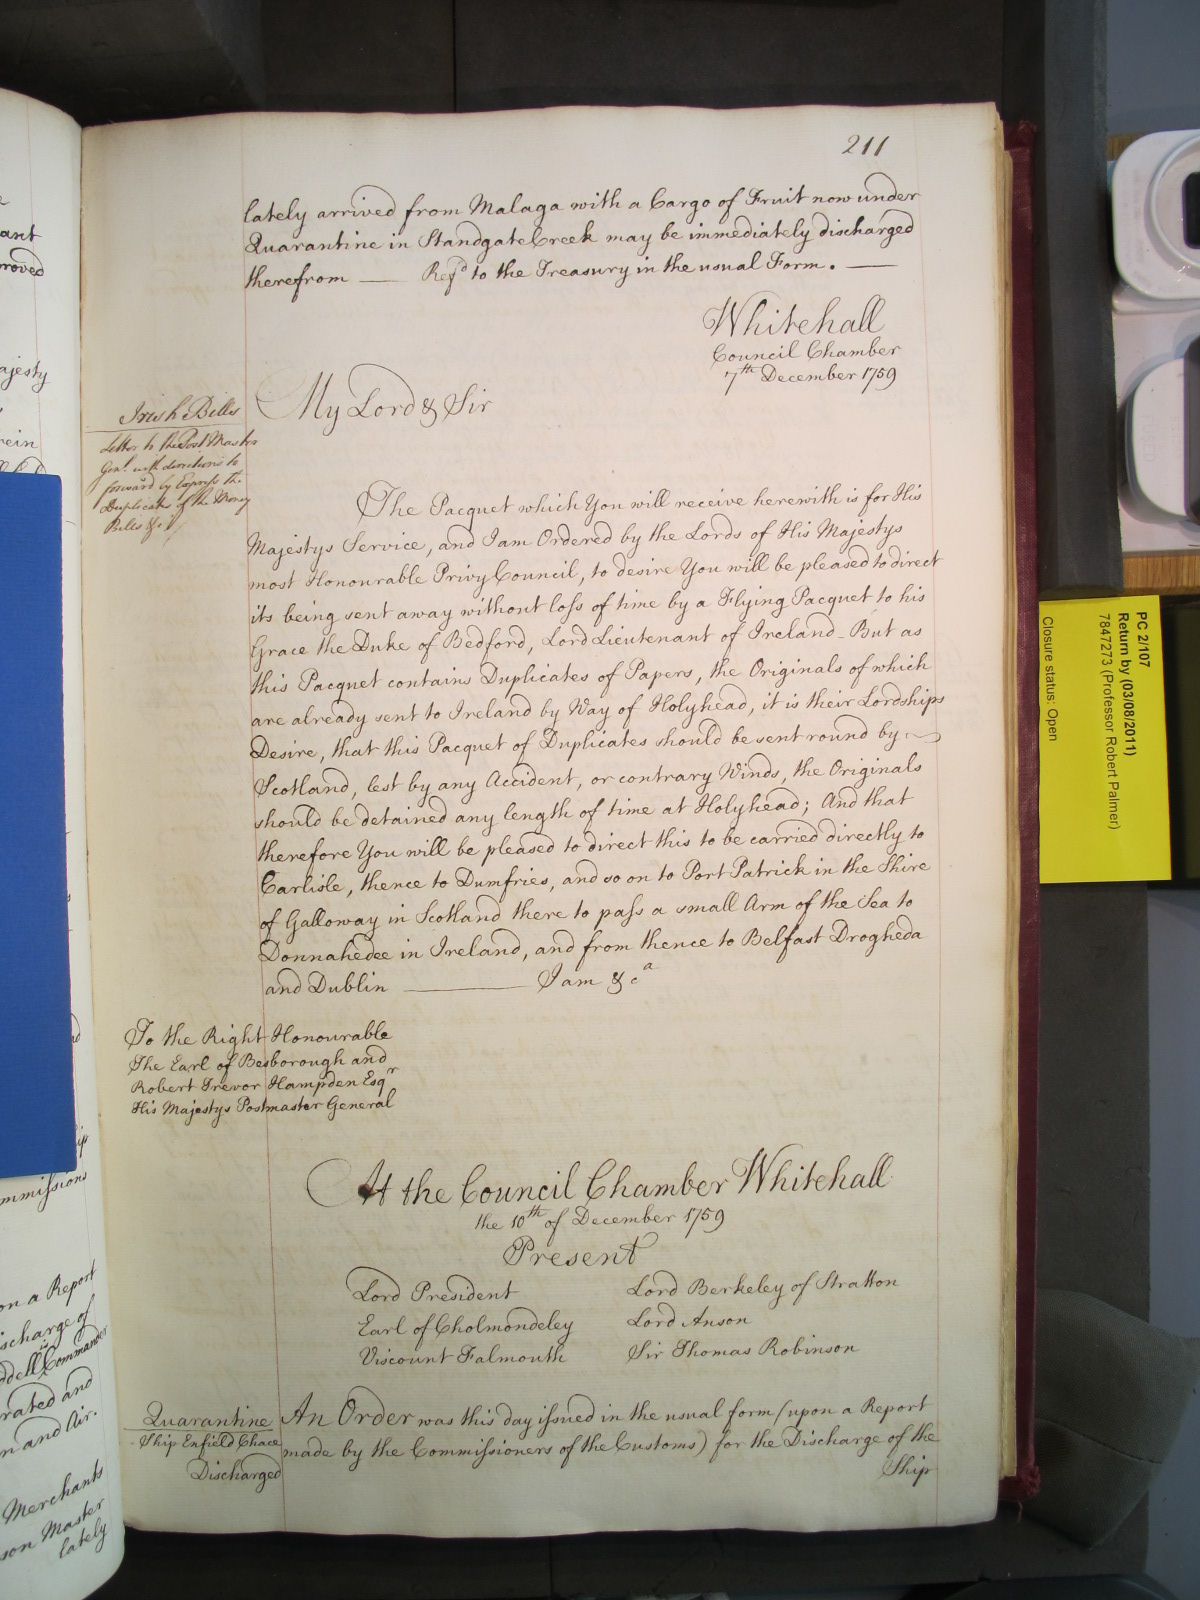 211
lately arrived from Malaga with a Cargo of Fruit now under
Quarantine in Standgate Creek may be immediately discharged
therefrom —— Refd to the Treasury in the usual Form. ——
Whitehall
Council Chamber
7th December 1759
My Lord & Sir
Irish Bills
Letter to the Post Master
Genl. with directions to
forward by Express the
Duplicates of the Money
Bills &c
The Pacquet which You will receive herewith is for His
Majestys Service, and I am Ordered by the Lords of His Majestys
most Honourable Privy Council, to desire You will be pleased to direct
its being sent away without loss of time by a Flying Pacquet to his
Grace the Duke of Bedford, Lord Lieutenant of Ireland_ But as
this Pacquet contains Duplicates of Papers, the Originals of which
are already sent to Ireland by Way of Holyhead, it is their Lordships
Desire, that this Pacquet of Duplicates should be sent round by
Scotland, lest by any Accident, or contrary Winds, the Originals
should be detained any length of time at Holyhead; And that
therefore You will be pleased to direct this to be carried directly to
Carlisle, thence to Dumfries, and so on to Port Patrick in the Shire
of Galloway in Scotland there to pass a small Arm of the Sea to
Donnahedee in Ireland, and from thence to Belfast Drogheda
and Dublin ———— I am &ca
To the Right Honourable
The Earl of Besborough and
Robert Trevor Hampden Esqr
His Majestys Postmaster General
At the Council Chamber Whitehall
the 10th of December 1759
Present
Lord President
Lord Berkeley of Stratton
Earl of Cholmondeley
Lord Anson
Viscount Falmouth
Sir Thomas Robinson
Quarantine
Ship Enfield Chace
Discharged
An Order was this day issued in the usual form (upon a Report
made by the Commissioners of the Customs) for the Discharge of the
Ship
ant
roved
ajesty
rein
mmissions
on a Report
ischarge of
Commander
rated and
n and Air.
Merchants
son Master
lately
PC 2/107
Return by (03/08/2011)
7847273 (Professor Robert Palmer)
Closure status: Open